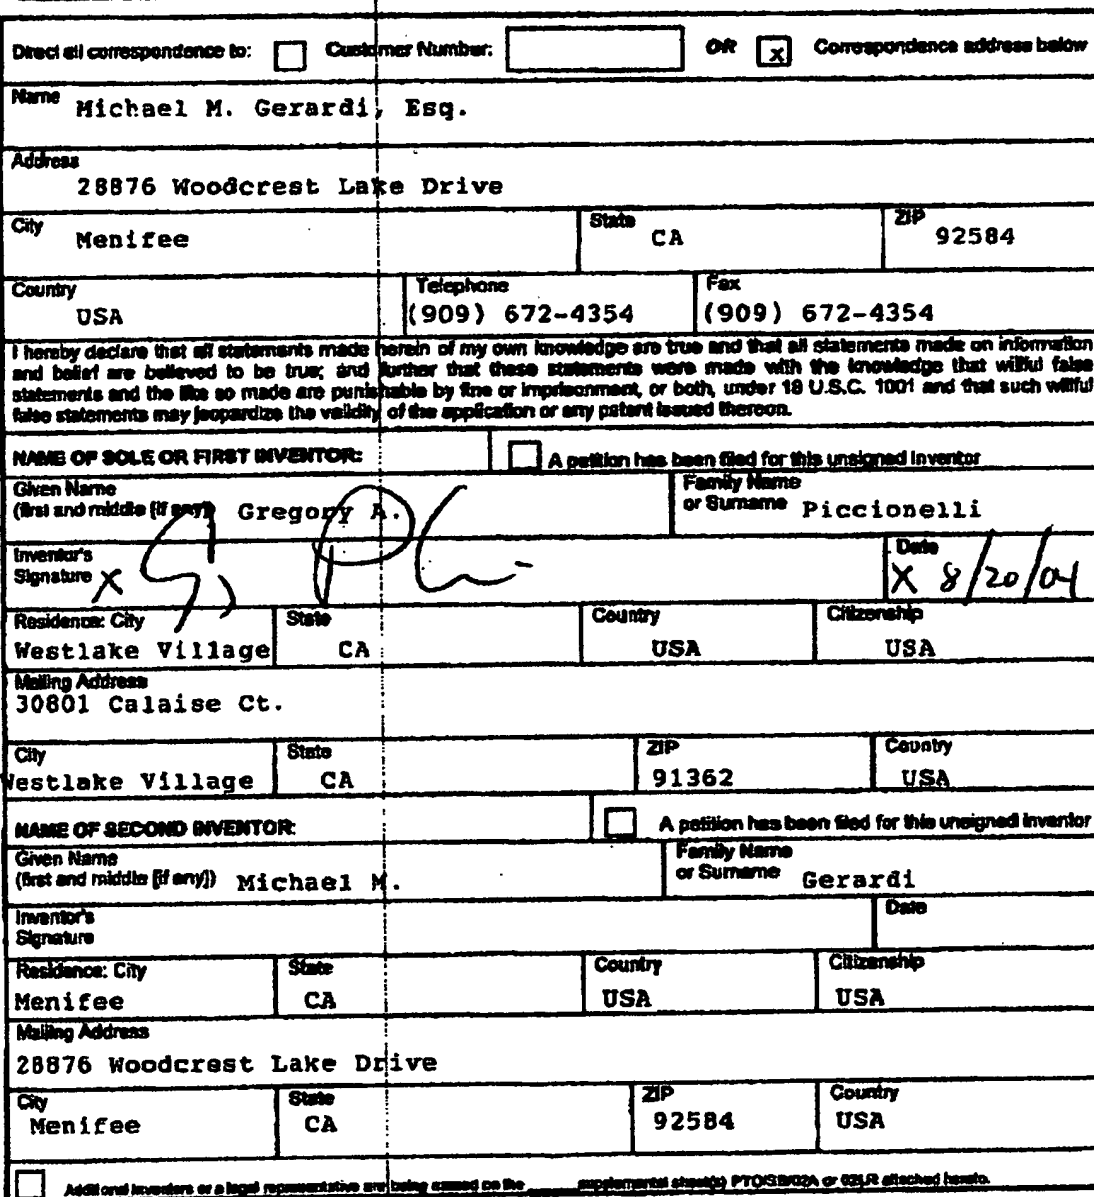 Direct all correspondence to: Customer Number: OR x Correspondence address below
Name Michael M. Gerardi, Esq.
Address
28876 Woodcrest Lake Drive
City Menifee State CA ZIP 92584
Country USA Telephone (909) 672-4354 Fax (909) 672-4354
I hereby declare that all statements made herein of my own knowledge are true and that all statements made on information
and belief are believed to be true; and further that these statements were made with the knowledge that willful false
statements and the like so made are punishable by fine or imprisonment, or both, under 18 U.S.C. 1001 and that such willful
false statements may jeopardize the validity of the application or any patent issued thereon.
NAME OF SOLE OR FIRST INVENTOR: A petition has been filed for this unsigned inventor
Given Name
(first and middle [if any]) Gregory A. Family Name
or Surname Piccionelli
Inventor's
Signature X Date
X 8/20/04
Residence: City State Country Citizenship
Westlake Village CA USA USA
Mailing Address
30801 Calaise Ct.
City State ZIP Country
Westlake Village CA 91362 USA
NAME OF SECOND INVENTOR: A petition has been filed for this unsigned inventor
Given Name
(first and middle [if any]) Michael M. Family Name
or Surname Gerardi
Inventor's
Signature Date
Residence: City State Country Citizenship
Menifee CA USA USA
Mailing Address
28876 Woodcrest Lake Drive
City State ZIP Country
Menifee CA 92584 USA
Additional inventors or a legal representative are being named on the supplemental sheet(s) PTO/SB/02A or 02LR attached hereto.